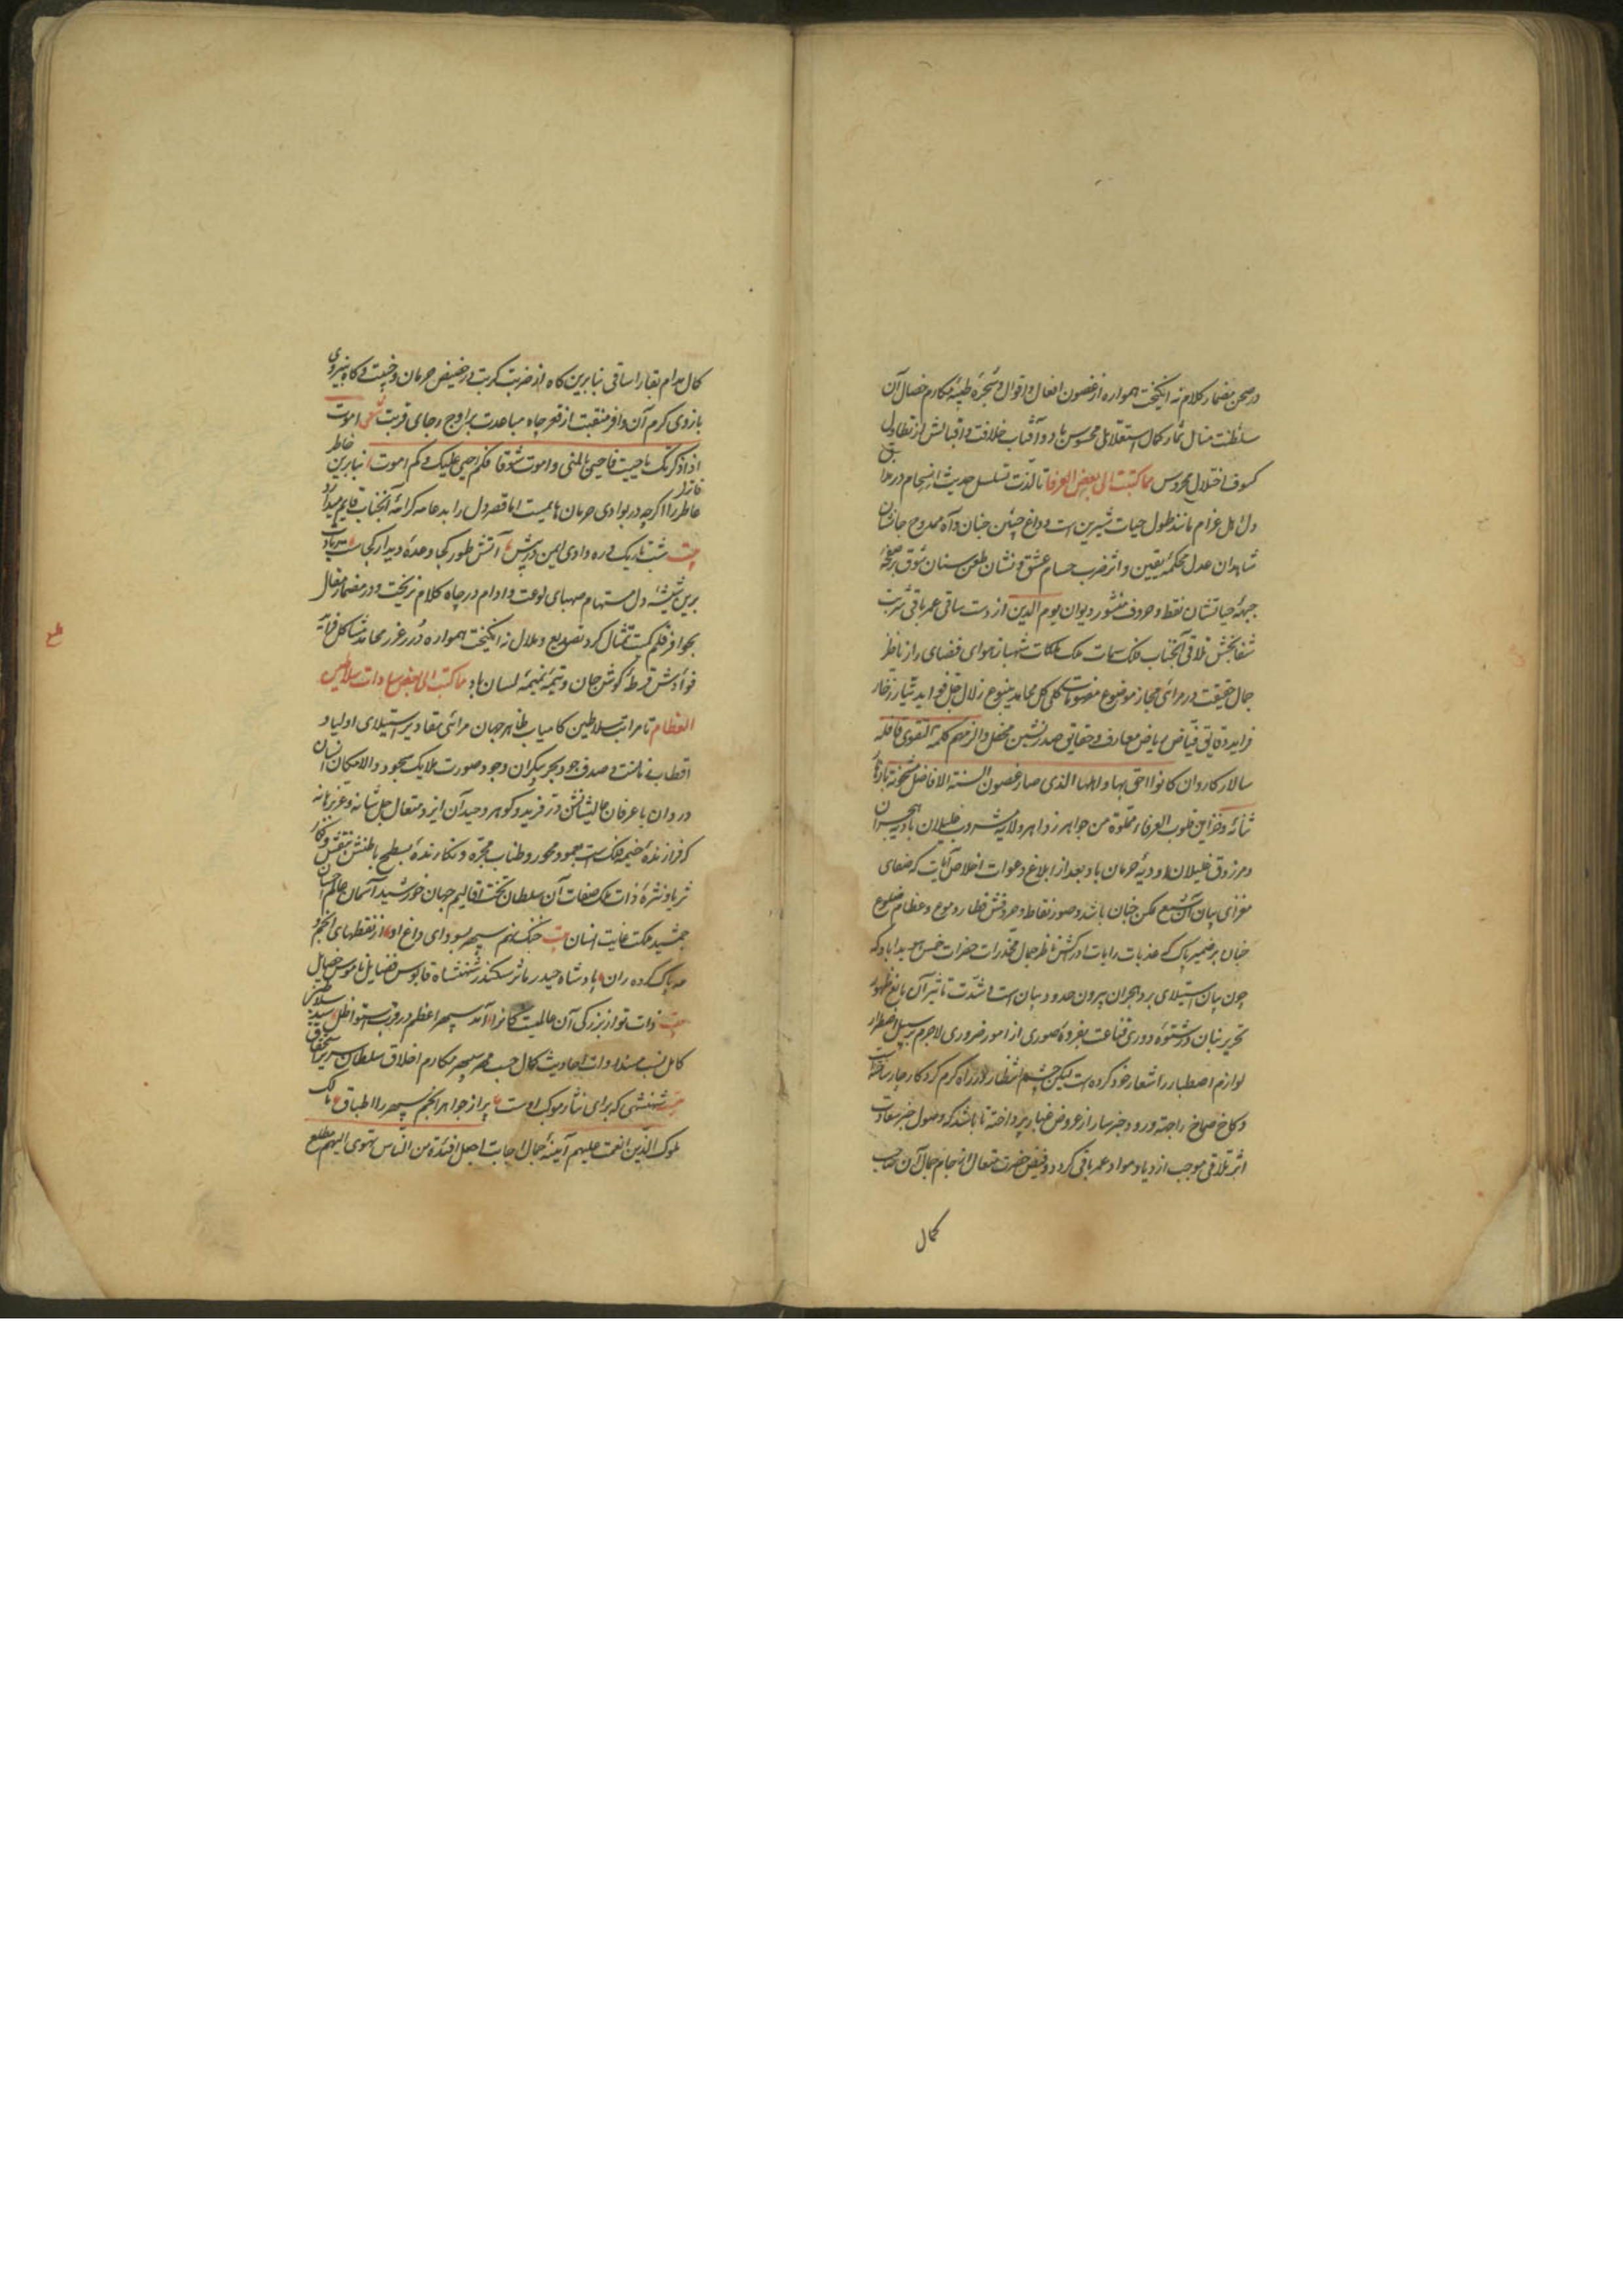 در صحن مضمار کلام نه انگیخت همواره از غصون افعال و اقوال و شجرهٔ طیبهٔ مکارم خصال آن
سلطنت منال ثمار کمال استقلال محسوس باد و آفتاب خلافت و اقبالش از تطاول
کسوف اختلال محروس مما کتبت الی بعض العرفا تا لذت تسلسل حدیث انسجام در مذاق
دل اهل غرام مانند طول حیات شیرین است و داغ جبین جنان و آه مجروح جانشان
شاهدان عدل محکمهٔ یقین و اثر ضرب حسام عشق و نشان طعن سنان شوق بر صفحهٔ
جبههٔ حیاتشان نقط و حروف منشور دیوان یوم الدین از دست ساقی عمر باقی شربت
شفابخش تلاقی آنجناب فلک سمات ملک ملکات شهباز هوای فضای راز ناظر
جمال حقیقت در مرائی مجاز موضوع مفهومات کلی کل محامد ینبوع زلال جل فواید تیار زخار
فراید دقایق فیاض ریاض معارف و حقایق صدرنشین محفل والزمهم کلمة التقوی قافله
سالار کاروان کانوا احق بها و اهلها الذی صار غصون السنة الافاضل مشحونة بازهار
ثنائه و خزاین قلوب العرفاء مملوة من جواهر زواهر ولایه مشروب غلیلان بادیه هجران
و مرزوق علیلان اودیهٔ حرمان باد بعد از ابلاغ دعوات اخلاص آیات که صفای
مغزای بیان آن شمع ممکن جنان باشد و صور نقاط و حروفش قطار دموع و عظام ضلوع
جنان بر ضمیر پاک که عذبات رایات ادراکش ناظر جمال مخدرات حضرات خمس میداباد که
چون بیان استیلای برد هجران بیرون حدود بیان است و شدت تاثیر آن مانع ظهور
تحریر بنان در شتوهٔ دوری قناعت بفروهٔ صوری از امور ضروری لاجرم بر سبیل اضطرار
لوازم اصطبار را شعار خود کرده است لیکن چشم انتظار را در راه کرم کردکار چار ساخته
و کاخ صماخ را جهة ورود خبر سار از عروض غبار پرداخته تا باشد که وصول خبر سعادت
اثر تلاقی موجب ازدیاد مواد عمر باقی کردد و فیض حضرت متعال از جام جمال آن جناب
کمال
کمال مدام بقا را ساقی بنابرین کاه از ضربت کربت در حضیض حرمان و خیبت و کاه بنیروی
بازوی کرم آن وافر منقبت از قعر چاه مباعدت بر اوج رجای قربت شعر اموت
اذا ذکرتک ثم احیی فاحیی بالمنی و اموت شوقا فکم احیی علیک و کم اموت بنابرین خاطر
خاطر را اگرچه در بوادی حرمان هایمست اما قصر دل را بدعامه کرامهٔ آنجناب قایم میدارد
بیت شب تاریک و ره وادی ایمن در پیش آتش طور کجا وعدهٔ دیدار کجاست
برین شیشهٔ دل مستهام صهبای لوعت و اوام در جام کلام نریخت و در مضمار مقال
بحوافر قلم کمیت تمثال کرد تصدیع و ملال نه انکیخت همواره درر غرر محامد متشاکل فرائد
فوائدش قرطهٔ کوش جان و تیمهٔ تمیمهٔ لسان باد مما کتبت الی بعض سادات سلاطین
العظام تا مراتب سلاطین کامیاب ظاهر جهان مرائی مقادیر استیلای اولیا و
اقطاب نهانست و صدف جود بحر بیکران وجود صورت ملایک سجود والامکان انسان
در دوان با عرفان عالیشانش در فرید و کوهر وحید آن ایزد متعال جل شانه و عز برهانه
که فرازندهٔ خیمهٔ فلکست بعمود محور و طناب مجره و نکارندهٔ سطح باطنش بنقش و نکار
ثریا و نثره ذات ملک صفات آن سلطان تخت اقالیم جهان خورشید آسمان عالم احسان
جمشید ملکت عنایت انسان بیت خنک انهم سپهر بسودای داغ او از نقطهای انجم و
مه پاک کرده ران پادشاه حیدر مآثر سکندر شهنشاه قابوس فضایل ناموس خصایل
بیت ذات تو از بزرکی آن عالمیست کانرا آمد سپهر اعظم در قرب استوا ظل سید سلاطین
کامل نسب مسند ذات احادیث کمال حسب مهر سپهر مکارم اخلاق سلطان سریر استحقاق
بیت شهنشهی که برای نثار موکب اوست پر از جواهر انجم سپهر را اطباق مالک
ملوک الذین انعمت علیهم آیینهٔ جمال اجابت اجعل افئدة من الناس تهوی الیهم مطلع